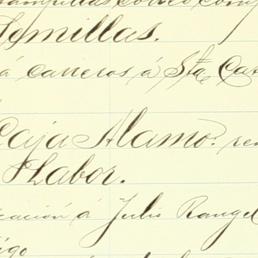 Semillas.
á carreros á Sta. Cat
Caja Alamo. re
Labor.
cación á Julio Rangel
igo